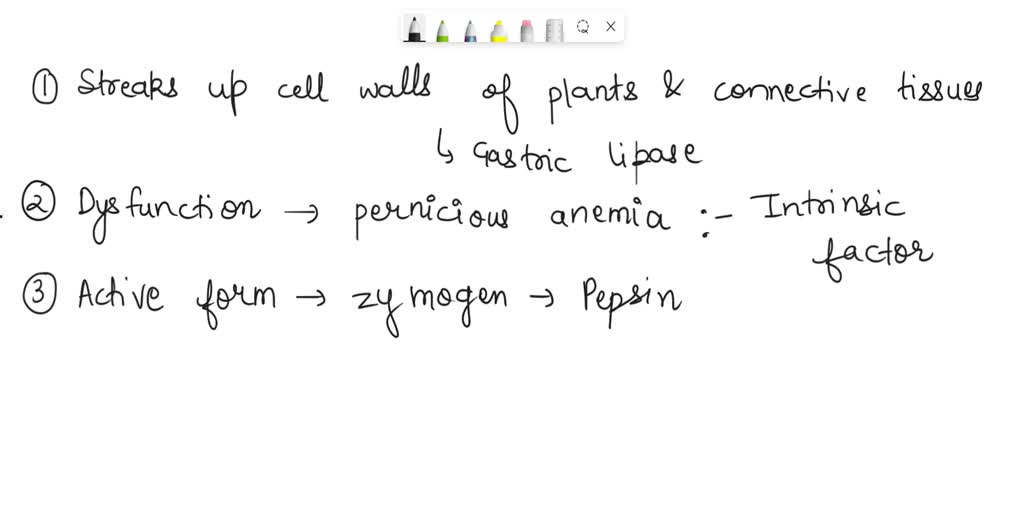 ① Streaks up cell walls of plants & connective tissues
↳ Gastric lipase
② Dysfunction → pernicious anemia :- Intrinsic
factor
③ Active form → zymogen → Pepsin